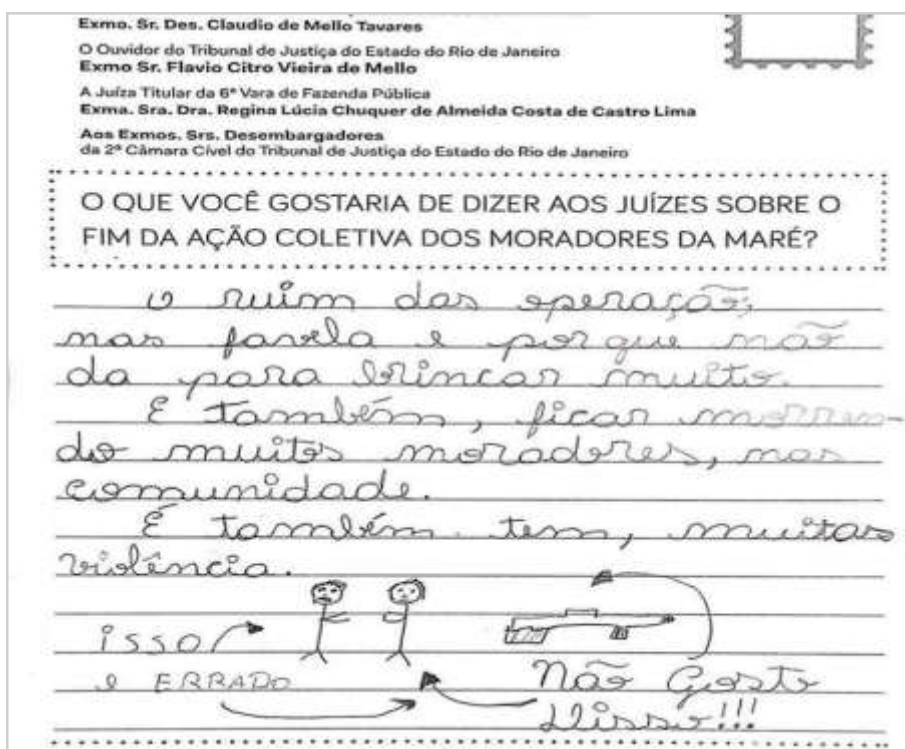 Exmo. Sr. Des. Claudio de Mello Tavares
O Ouvidor do Tribunal de Justiça do Estado do Rio de Janeiro
Exmo Sr. Flavio Citro Vieira de Mello
A Juíza Titular da 6ª Vara de Fazenda Pública
Exma. Sra. Dra. Regina Lúcia Chuquer de Almeida Costa de Castro Lima
Aos Exmos. Srs. Desembargadores
da 2ª Câmara Cível do Tribunal de Justiça do Estado do Rio de Janeiro
O QUE VOCÊ GOSTARIA DE DIZER AOS JUÍZES SOBRE O
FIM DA AÇÃO COLETIVA DOS MORADORES DA MARÉ?
o ruim das operação,
nas favela e por que não
da para brincar muito.
E também, ficar morren-
do muitos moradores, nas
comunidade.
É também tem, muitas
violência.
isso
e ERRADO
Não Gosto
Disso!!!